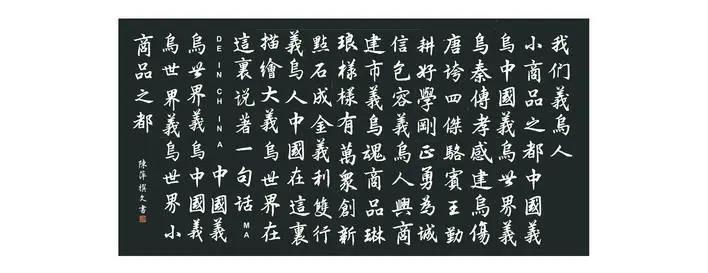 我们義烏人
小商品之都中國義
烏中國義烏世界義
烏秦傳孝感建烏傷
唐誇四傑駱賓王勤
耕好學剛正勇為誠
信包容義烏人興商
建市義烏魂商品琳
琅樣樣有萬眾創新
點石成金義利雙行
義烏人中國在這裏
描繪大義烏世界在
這裏说著一句话 MA
DE IN CHINA 中國義
烏世界義烏中國義
烏世界義烏世界小
商品之都
陳萍撰文書